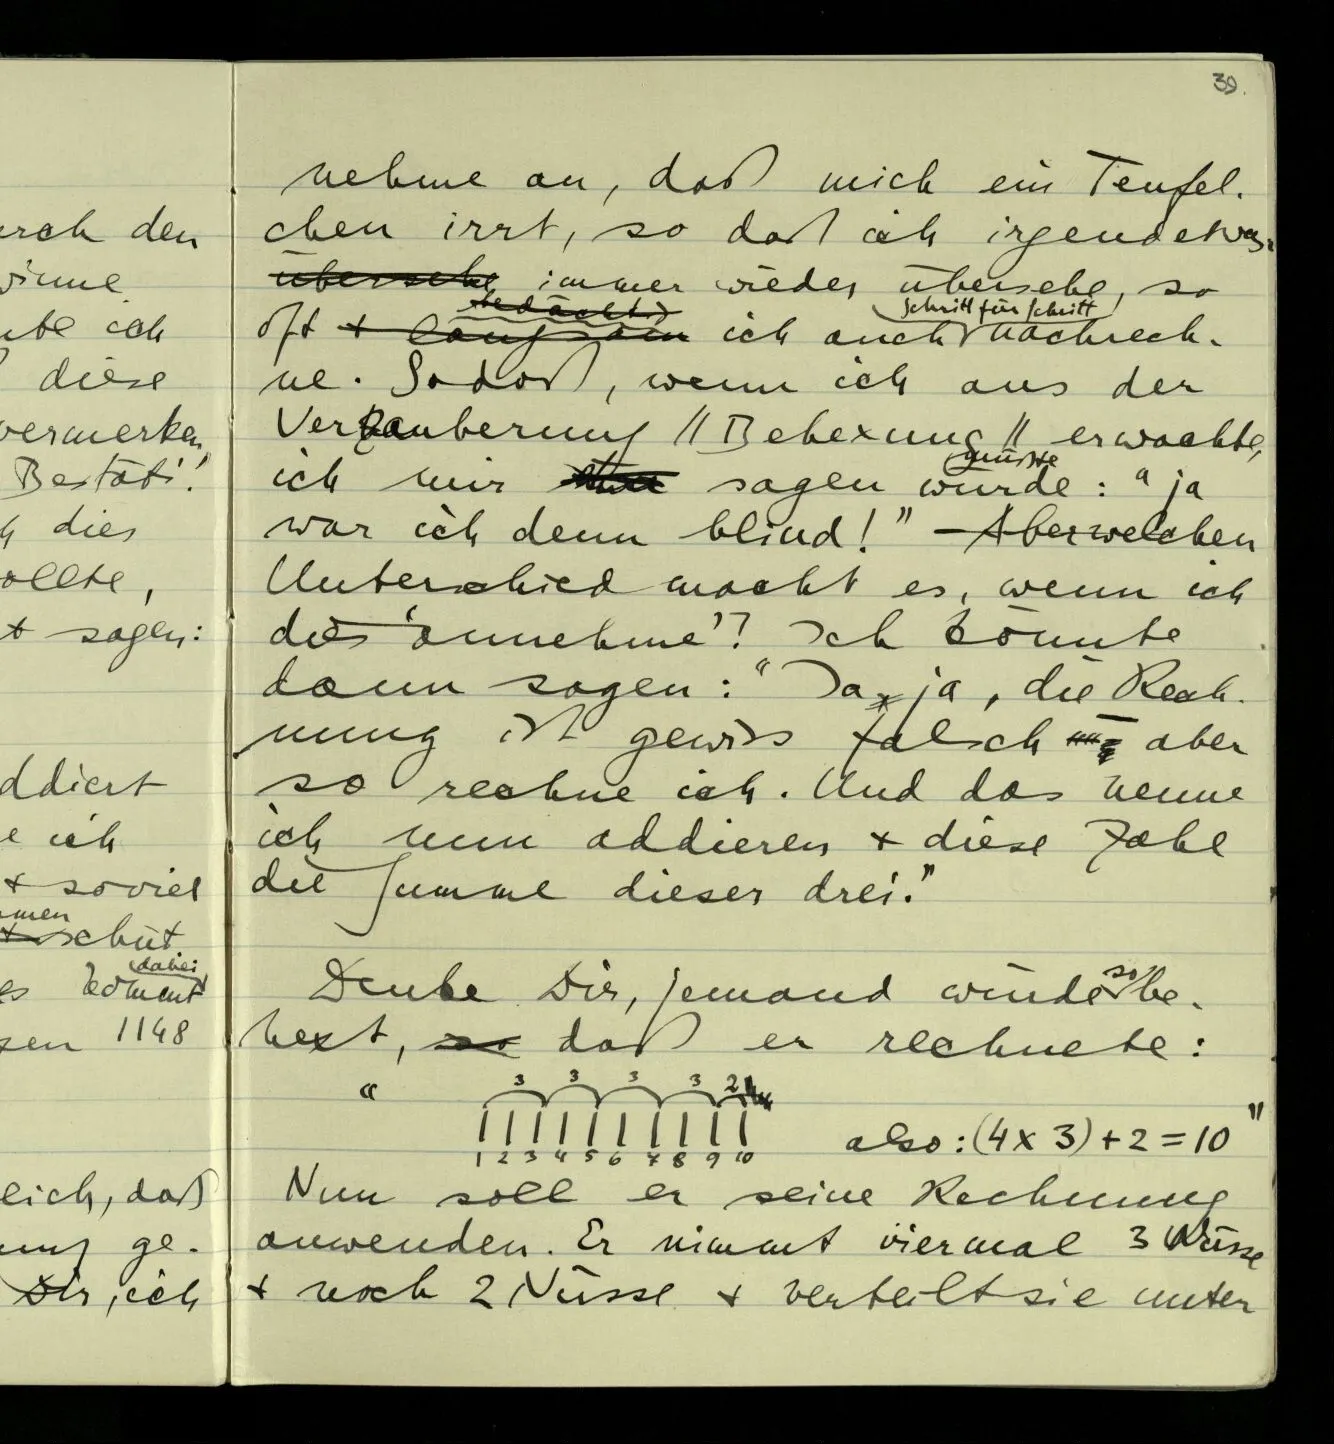 39.
nehme an, daß mich ein Teufel-
chen irrt, so daß ich irgendetwas
übersehe immer wieder übersehe, so
bedächtig schritt für schritt
oft + langsam ich auch nachrech-
ne. Sodaß, wenn ich aus der
Verzauberung // Behexung // erwachte,
müsste
ich mir sagen würde: "ja
war ich denn blind!" – Aber welchen
Unterschied macht es, wenn ich
dies 'annehme'? Ich könnte
dann sagen: "Ja, ja, die Rech-
nung ist gewiss falsch – aber
so rechne ich. Und das nenne
ich nun addieren + diese Zahl
die Summe dieser drei."
so
Denke Dir, jemand würde be-
hext, so daß er rechnete:
" 3 3 3 3 2
1 2 3 4 5 6 7 8 9 10 also: (4 x 3) + 2 = 10 "
Nun soll er seine Rechnung
anwenden. Er nimmt viermal 3 Nüsse
+ noch 2 Nüsse + verteilt sie unter
den
ich
diese
vermerken,
Bestäti-
dies
sollte,
+ sagen:
addiert
ich
+ soviel
dabei
kommt
1148
daß
ge-
Dir, ich